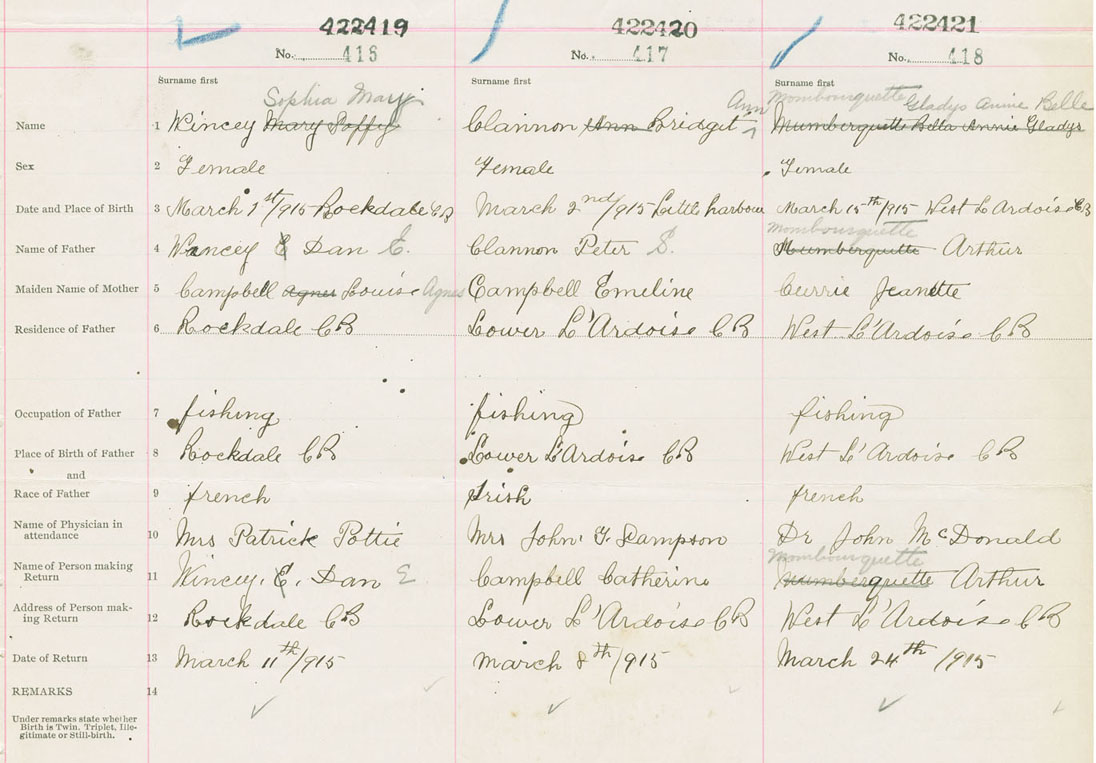 422419 422420 422421
No. 416 No. 417 No. 418
Surname first Surname first Surname first
Sophia Mary Ann Mombourquette Gladys Annie Belle
Name 1 Kincey Mary Soffy Clannon Ann Bridget Mumberquette Bella Annie Gladys
Sex 2 Female Female Female
Date and Place of Birth 3 March 1st/915 Rockdale CB March 2nd/915 Little harbour March 15th/915 West L'Ardoise CB
Mombourquette
Name of Father 4 Kincey E Dan E. Clannon Peter S. Mumberquette Arthur
Maiden Name of Mother 5 Campbell Agnes Louise Agnes Campbell Emeline Currie Jeanette
Residence of Father 6 Rockdale CB Lower L'Ardoise CB West L'Ardoise CB
Occupation of Father 7 fishing fishing fishing
Place of Birth of Father 8 Rockdale CB Lower L'Ardoise CB West L'Ardoise CB
and
Race of Father 9 french Irish french
Name of Physician in
attendance 10 Mrs Patrick Pottie Mrs John Sampson Dr John McDonald
Mombourquette
Name of Person making
Return 11 Kincey E. Dan E Campbell Catherine Mumberquette Arthur
Address of Person mak-
ing Return 12 Rockdale CB Lower L'Ardoise CB West L'Ardoise CB
Date of Return 13 March 11th/915 March 8th/915 March 24th/915
REMARKS 14
Under remarks state whether
Birth is Twin, Triplet, Ille-
gitimate or Still-birth.